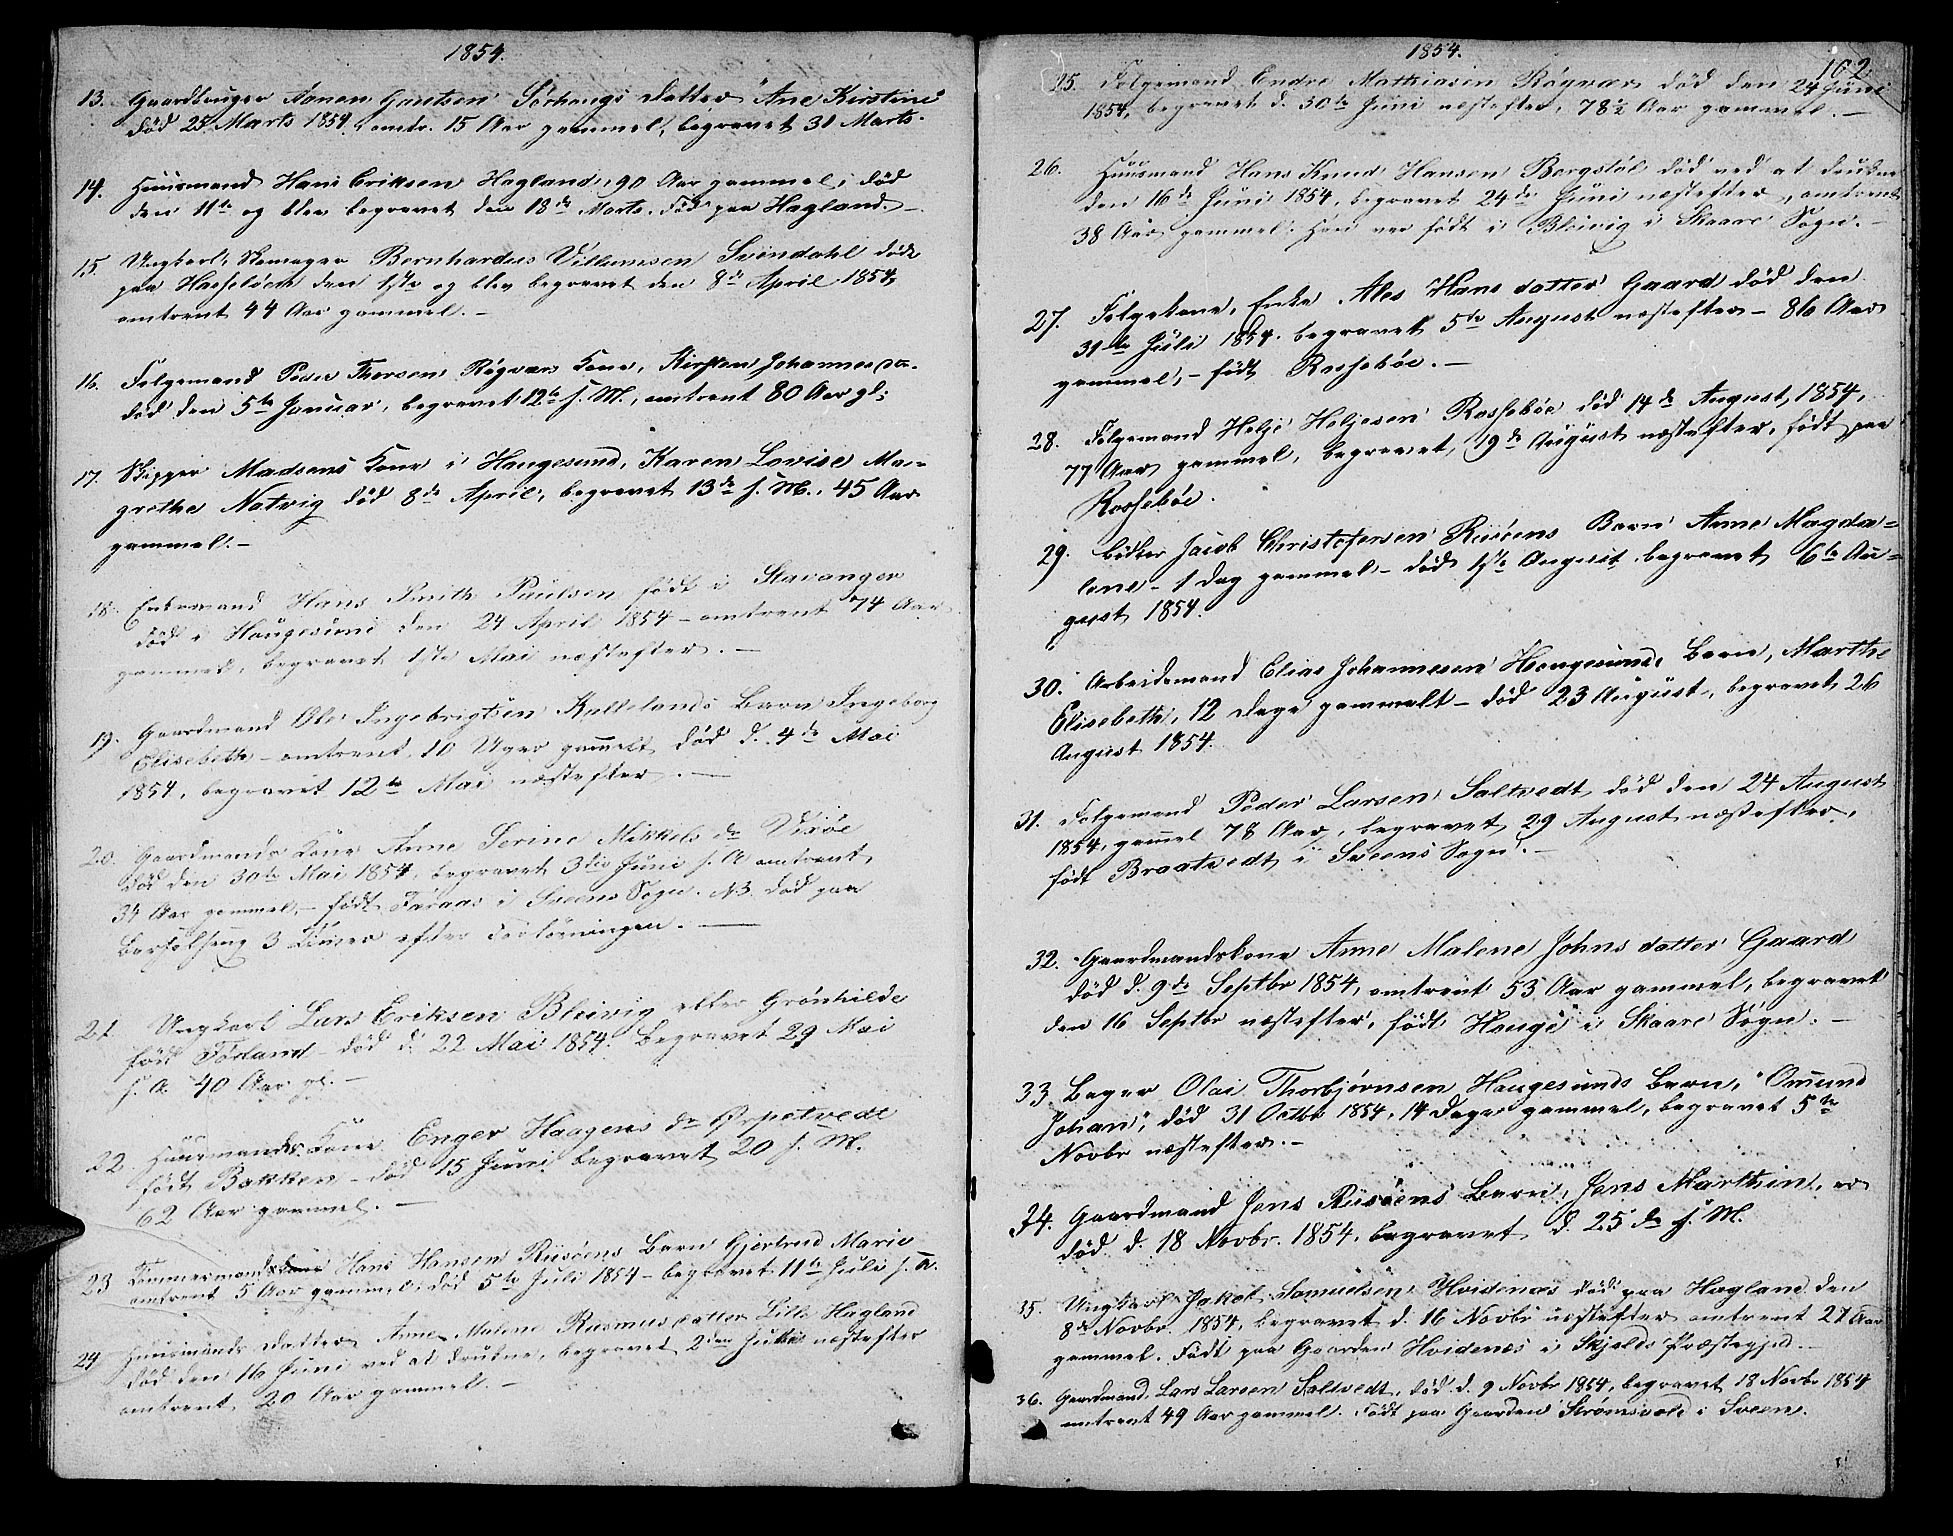 1854.
13. Gaardbruger Aanen Gautsen Sørhaugs Datter "Ane Kirstine"
død 25 Marts 1854, omtr. 15 Aar gammel, begravet 31 Marts.
14. Huusmand Hans Eriksen Hagland, 90 Aar gammel; død
den 11te og blev begravet den 18de Marts. Født paa Hagland. –
15. Ungkarl, Skomager Bernhardus Villumsen Svendahl døde
paa Hasseløen den 1ste og blev begravet den 8de April 1854,
omtrent 44 Aar gammel. –
16. Folgemand Peder Thorsen Røgvær Kone, Kirsten Johannes Dr.
død den 5te Januar, begravet 12te s. M., omtrent 80 Aar gl;
17. Skipper Madsens Kone i Haugesund, Karen Lovise Mar=
grethe Natvig død 8de April, begravet 13de s. M., 45 Aar
gammel. –
18. Enkemand Hans Smith Paulsen født i Stavanger
død i Haugesund den 24 April 1854 – omtrent 74 Aar
gammel, begravet 1ste Mai næstefter. –
19. Gaardmand Ole Ingebrigtsen Kallelands Barn Ingeborg
Elisebeth – omtrent 10 Uger gammelt død d. 4de Mai
1854, begravet 12te Mai næstefter. –
20. Gaardmands Kone Anne Serine Mikkels Dr Visøe
død den 30te Mai 1854, begravet 3die Juni s. A omtrent
34 Aar gammel, – født i Sveens Sogn. NB. død paa
Barselseng 3 Timer efter Forløsningen. –
21. Ungkarl Lars Eriksen Bleivig eller Grønhilde
født Føeland – død d. 22 Mai 1854. Begravet 29 Mai
s. A. 40 Aar gl. –
22. Huusmands Kone Enger Haagens Dr Ørpetvedt
født Bakken – død 15 Juni begravet 20 s. M.
62 Aar gammel. –
23 Tømmermands Hans Hansen Risøens Barn Gjertrud Marie
omtrent 5 Aar gammel, død 5te Juli 1854 – begravet 11te Juli s. A.
24 Huusmands Datter Anne Malene Rasmus datter Lille Hagland
død den 16 Juni ved at drukne, begravet 2den Juli næstefter
omtrent 20 Aar gammel. –
1854.
102
25. Folgemand Endre Mathiasen Røgvær død den 24 Juni
1854, begravet d. 30te Juni næstefter, 78½ Aar gammel. –
26. Huusmand Hans Knud Hansen Bergstøl død ved at drukne
den 16de Juni 1854, begravet 24de Juni næstefter, omtrent
38 Aar gammel. Han var født i Bleivig i Skaare Sogn. –
27. Folgekone, Enke Ales Hans datter Gaard død den
31te Juli 1854. begravet 5te August næstefter – 86 Aar
gammel, – født Rossebøe. –
28. Folgemand Helje Heljesen Rossebøe død 14de August, 1854,
77 Aar gammel, begravet, 19de August næstefter, født paa
Rossebøe.
29. Bødker Jacob Christofersen Risøens Barn Anne Magda=
lene – 1 dag gammel – død 1ste August begravet 6te Au=
gust 1854.
30. Arbeidsmand Elias Johannesen Haugesunds Barn, Marthe
Elisebeth, 12 Dage gammelt – død 23 August, begravet 26
August 1854.
31. Folgemand Peder Larsen Saltvedt død den 24 August
1854, gammel 78 Aar, begravet 29 August næstefter.
født Braatvedt i Sveens Sogn. –
32. Gaardmandskone Anne Malene Johns datter Gaard
død d. 9de Septbr 1854, omtrent 53 Aar gammel, begravet
den 16 Septbr næstefter, født Hauge i Skaare Sogn. –
33. Bager Olai Thorbjørnsen Haugesunds Barn, "Omund
Johan", død 31 Octbr 1854, 14 Dage gammel, begravet 5te
Novbr næstefter. –
34. Gaardmand Jens Risøens Barn, Jens Marthin, er
død d. 18 Novbr. 1854 begravet d. 25de s. M.
35. Ungkarl Jakob Samuelsen Hvidenæs død paa Hagland den
8de Novbr. 1854, begravet d. 16 Novbr næstefter omtrent 27 Aar
gammel. Født paa Gaarden Hvidenæs i Skjolds Præstegjeld. –
36. Gaardmand Lars Larsen Saltvedt, død d. 9 Novbr 1854, begravet 18 Novbr 1854
omtrent 49 Aar gammel. Født paa Gaarden Strømsvold i Sveen.